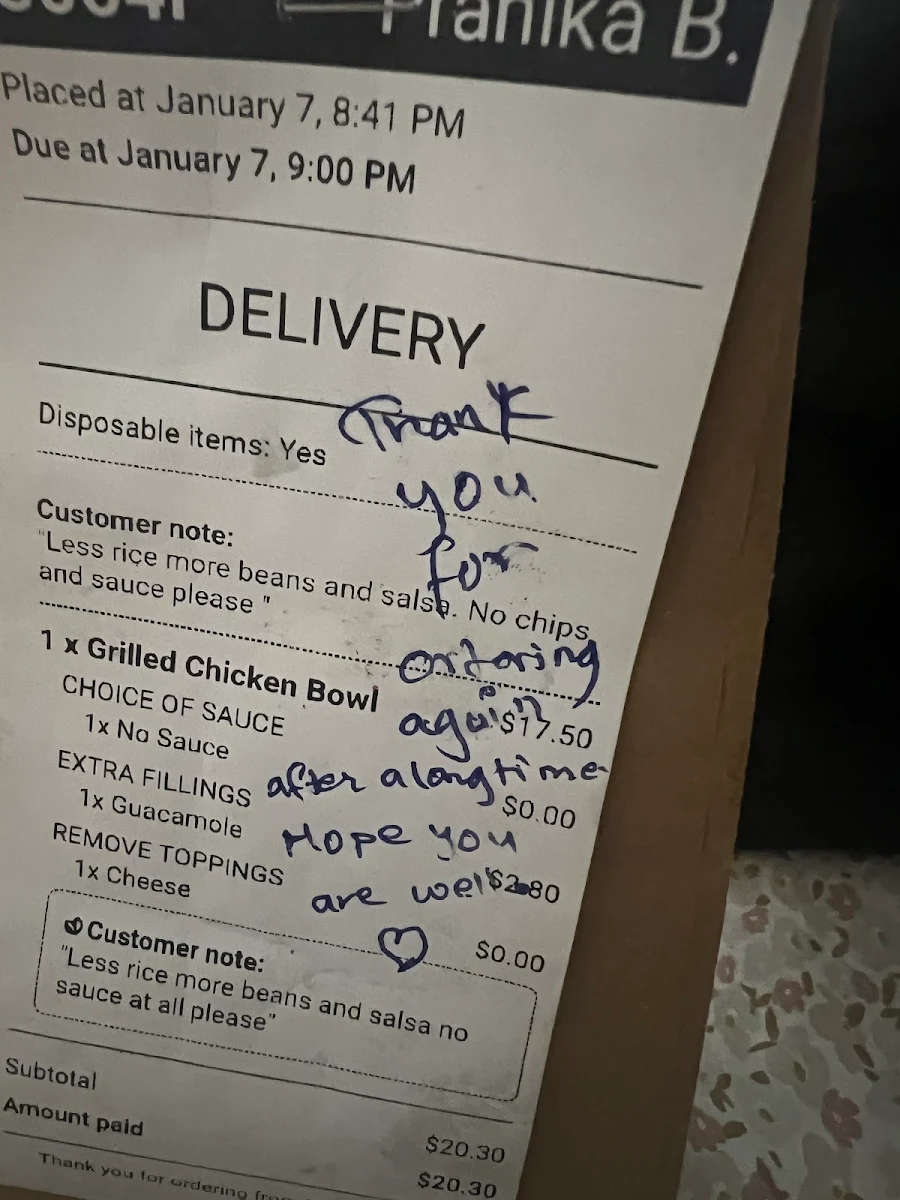 Pranika B.
Placed at January 7, 8:41 PM
Due at January 7, 9:00 PM
DELIVERY
Disposable items: Yes
Customer note:
"Less rice more beans and salsa. No chips
and sauce please "
1 x Grilled Chicken Bowl
$17.50
CHOICE OF SAUCE
1x No Sauce
$0.00
EXTRA FILLINGS
1x Guacamole
$2.80
REMOVE TOPPINGS
1x Cheese
$0.00
Customer note:
"Less rice more beans and salsa no
sauce at all please"
Subtotal
$20.30
Amount paid
$20.30
Thank you for ordering
Thank
you
for
ordering
again
after a long time
Hope you
are well